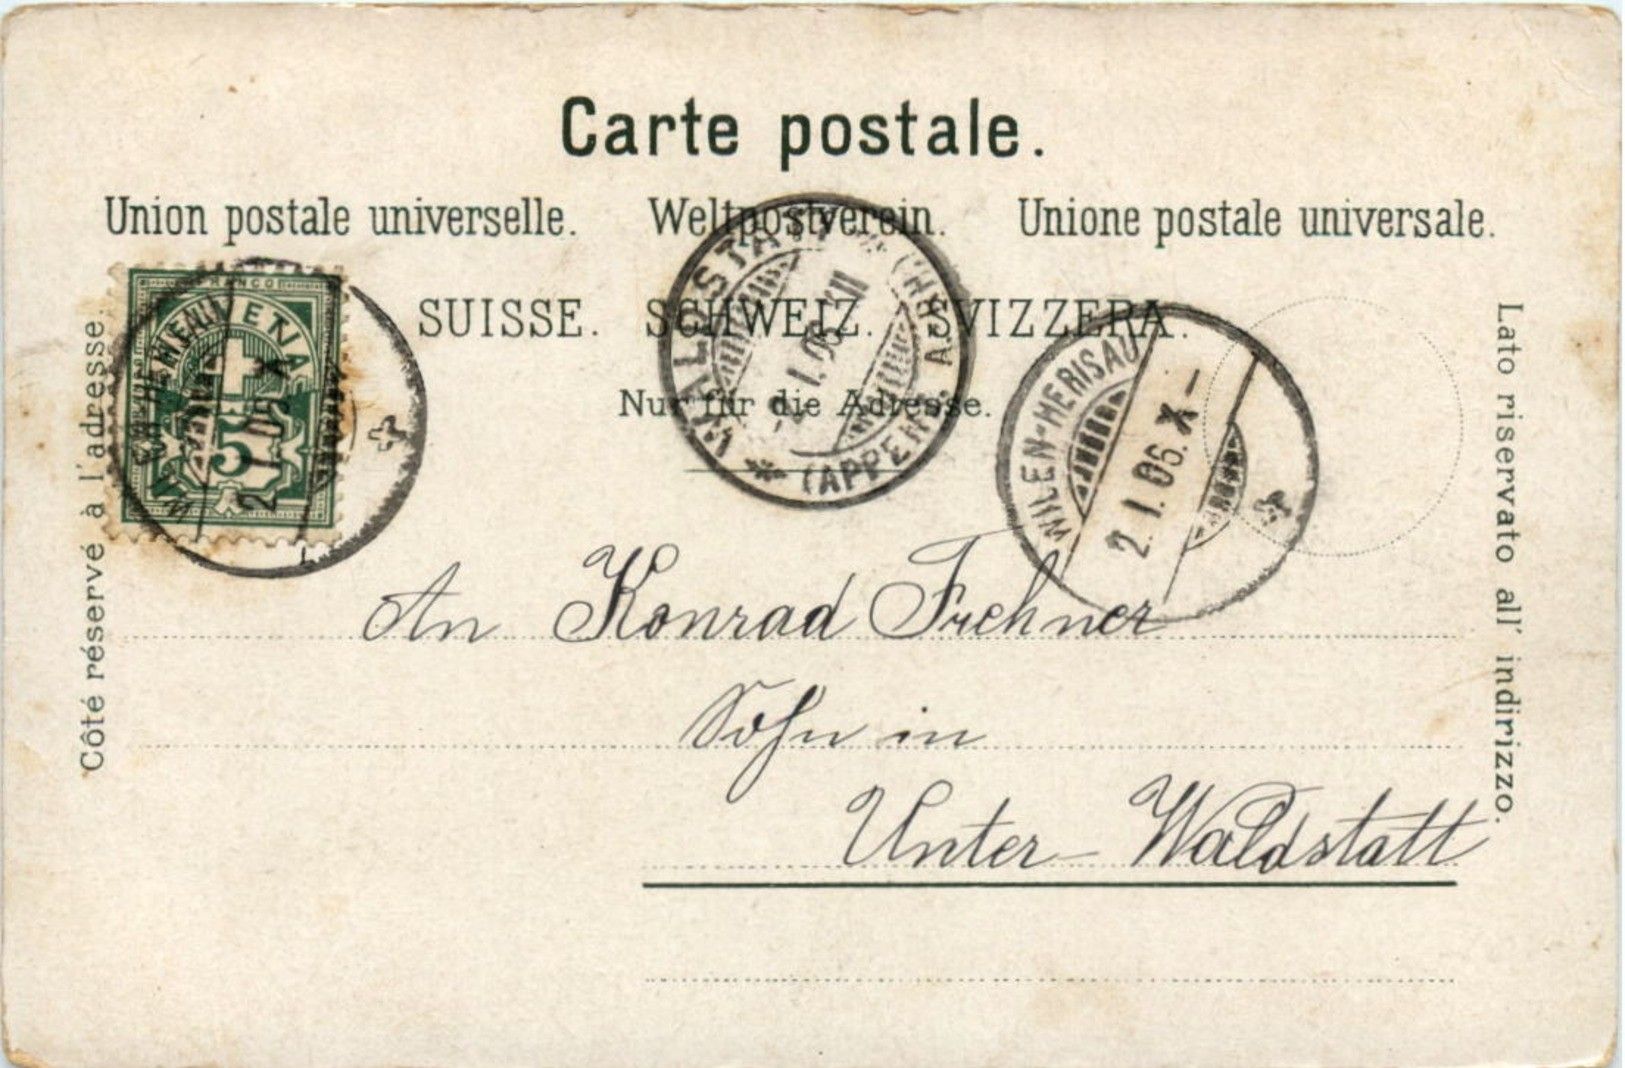 Carte postale.
Union postale universelle. Weltpostverein. Unione postale universale.
SUISSE. SCHWEIZ. SVIZZERA.
Nur für die Adresse.
Côté réservé à l'adresse.
Lato riservato all' indirizzo.
FRANCO
HELVETIA
5
2.I.06.X
WALDSTATT
(APPENZ. A.RH.)
2.I.06.XII
WILEN-HERISAU
2.I.06.X-
An Konrad Frehner
Sohn in
Unter Waldstatt